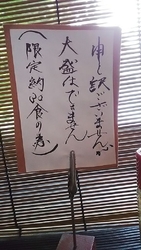 申し訳ございません。
大盛はできません
(限定納即食の為)